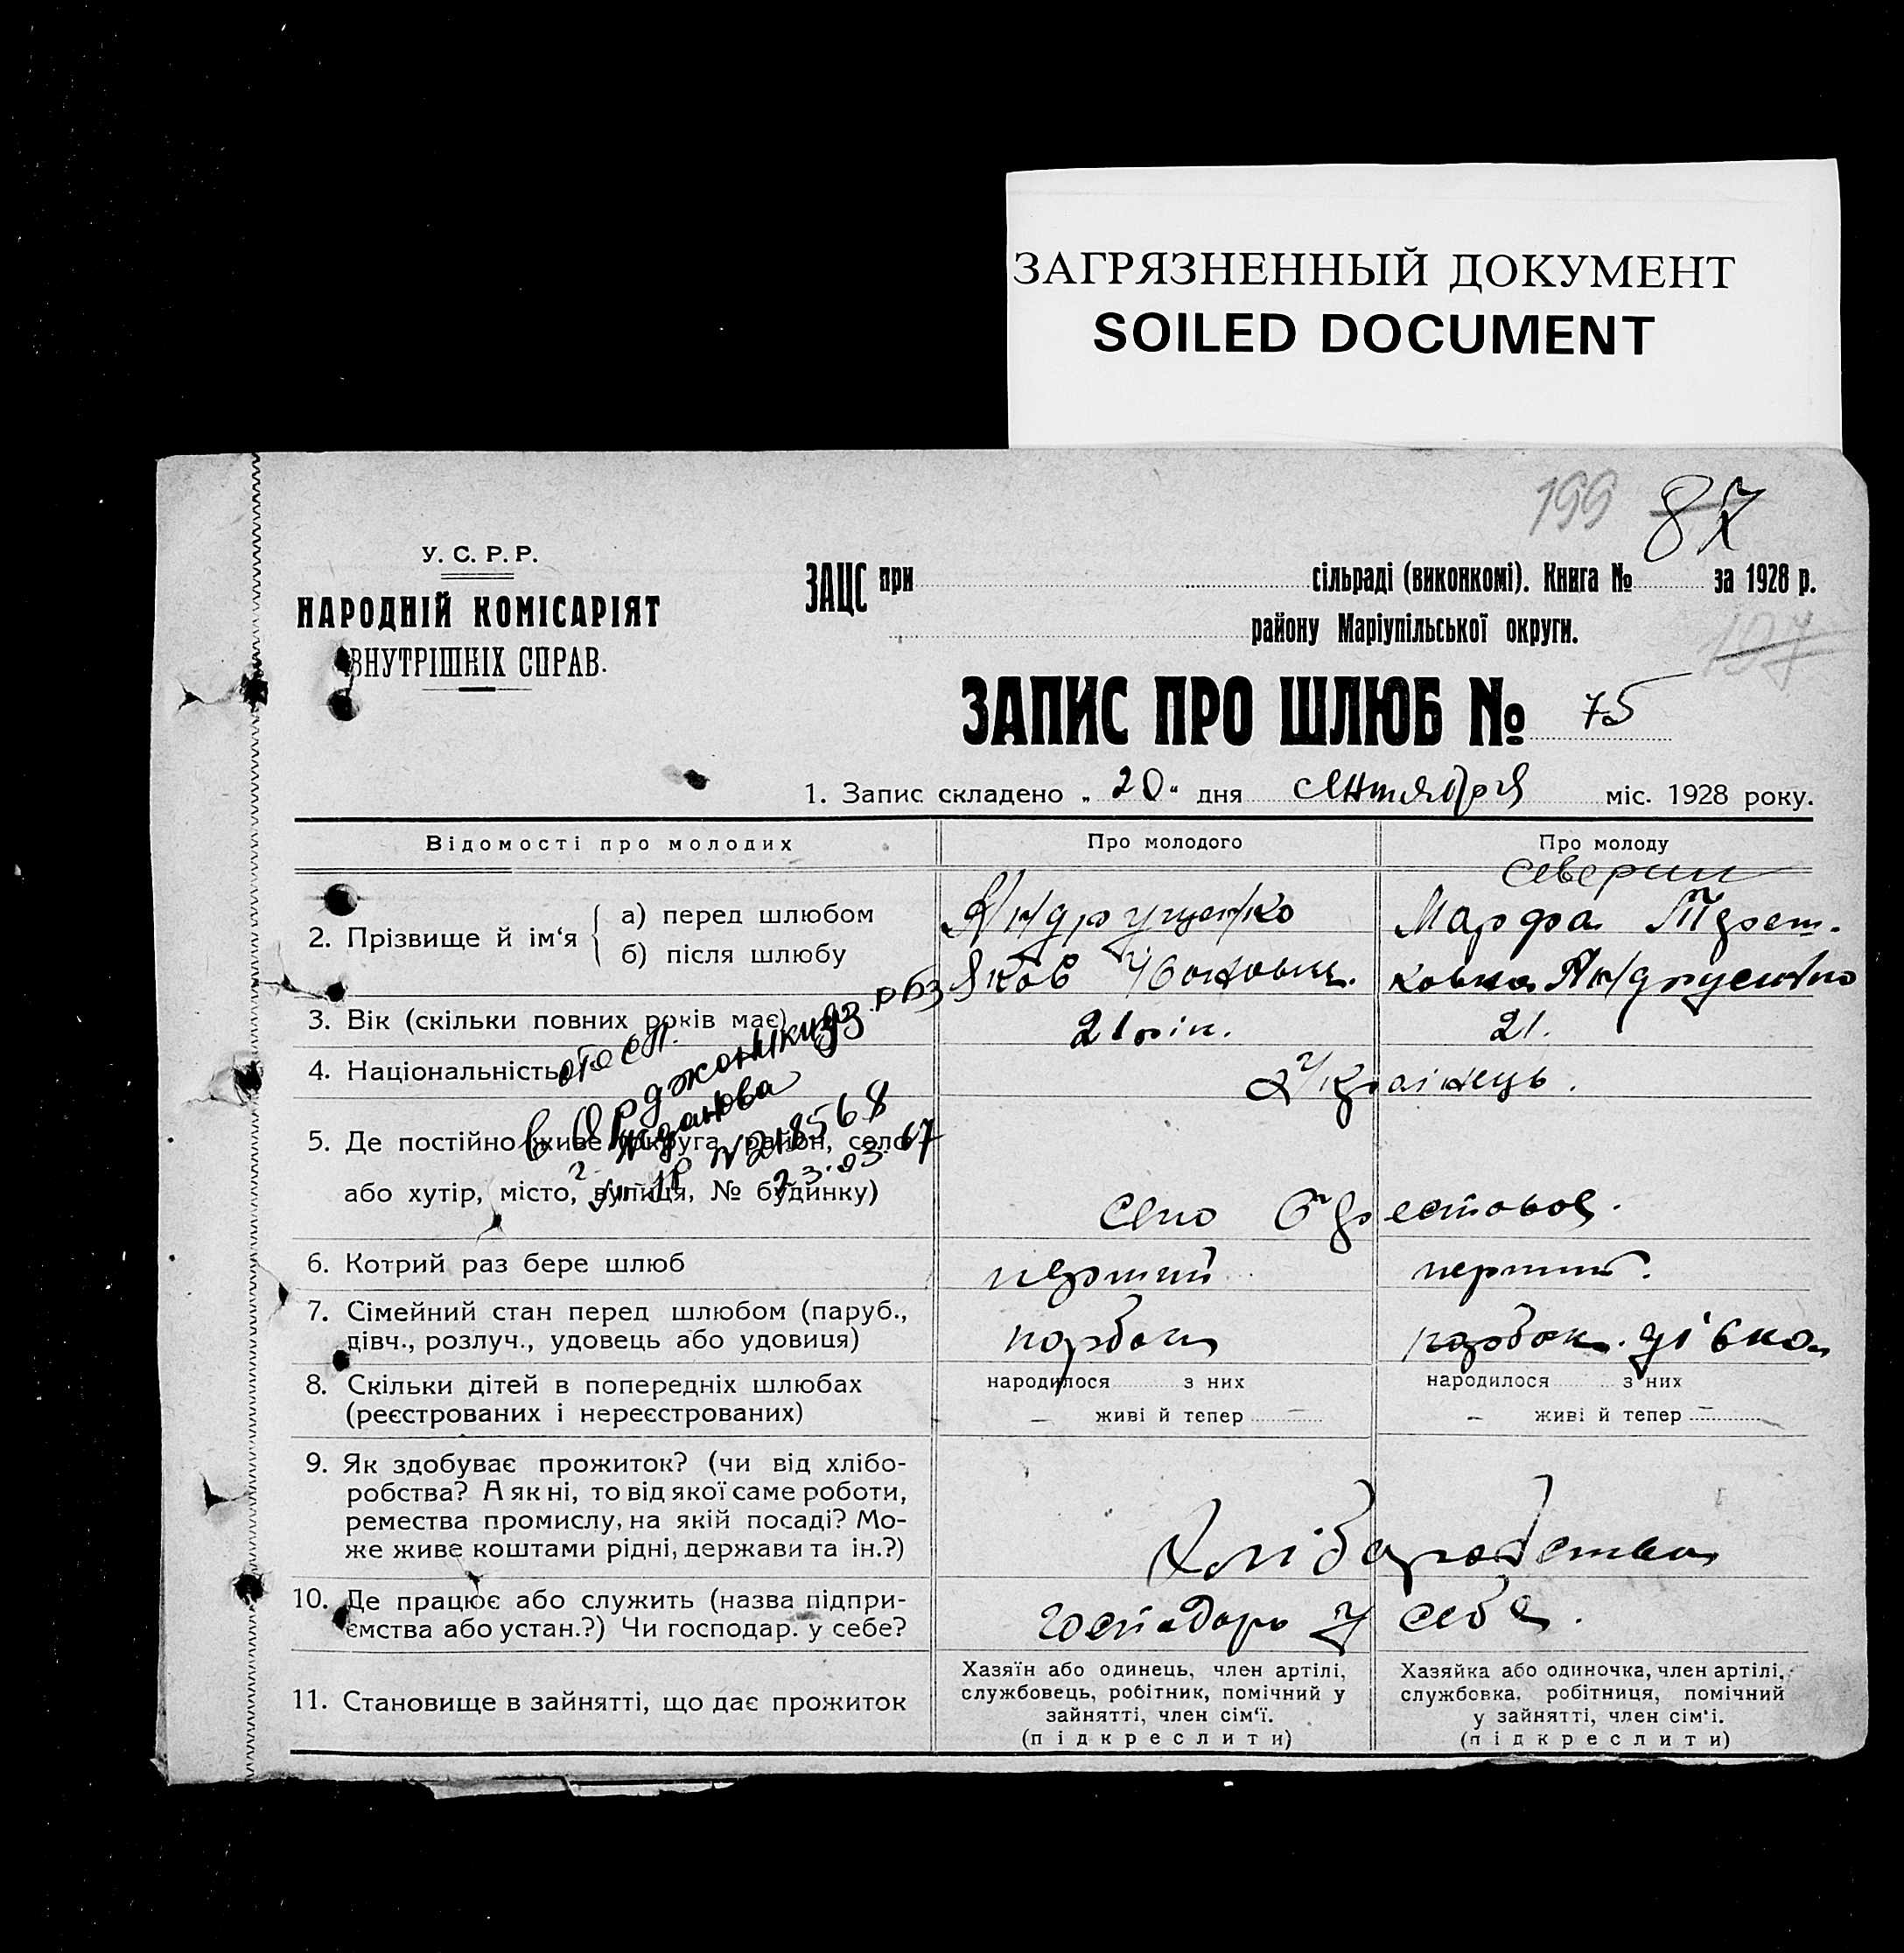 ЗАГРЯЗНЕННЫЙ ДОКУМЕНТ
SOILED DOCUMENT
199 87
У. С. Р. Р.
НАРОДНІЙ КОМІСАРІЯТ
ВНУТРІШНІХ СПРАВ.
ЗАЦС при сільраді (виконкомі). Книга № за 1928 р.
району Маріупільської округи.
107
ЗАПИС ПРО ШЛЮБ № 75
1. Запис складено „ 20 " дня сентября міс. 1928 року.
Відомості про молодих
Про молодого
Про молоду
2. Прізвище й ім'я
а) перед шлюбом
б) після шлюбу
Андрущенко
Яков
Марфа
3. Вік (скільки повних років має)
21 рік.
21.
4. Національність
Українець.
5. Де постійно живе (округа, район, село
або хутір, місто, вулиця, № будинку)
в. Орджоникидз. рбз
г. Жданова
N 218568
23.03.67
село
6. Котрий раз бере шлюб
перший
перший.
7. Сімейний стан перед шлюбом (паруб.,
дівч., розлуч., удовець або удовиця)
парубок
парубок. дівка
8. Скільки дітей в попередніх шлюбах
(реєстрованих і нереєстрованих)
народилося з них
— живі й тепер —
народилося з них
— живі й тепер —
9. Як здобуває прожиток? (чи від хлібо-
робства? А як ні, то від якої саме роботи,
ремества промислу, на якій посаді? Мо-
же живе коштами рідні, держави та ін.?)
Хліборобства
10. Де працює або служить (назва підпри-
ємства або устан.?) Чи господар. у себе?
господарь у себе.
11. Становище в зайнятті, що дає прожиток
Хазяїн або одинець, член артілі,
службовець, робітник, помічний у
зайнятті, член сім'ї.
(підкреслити)
Хазяйка або одиночка, член артілі,
службовка, робітниця, помічний
у зайнятті, член сім'ї.
(підкреслити)